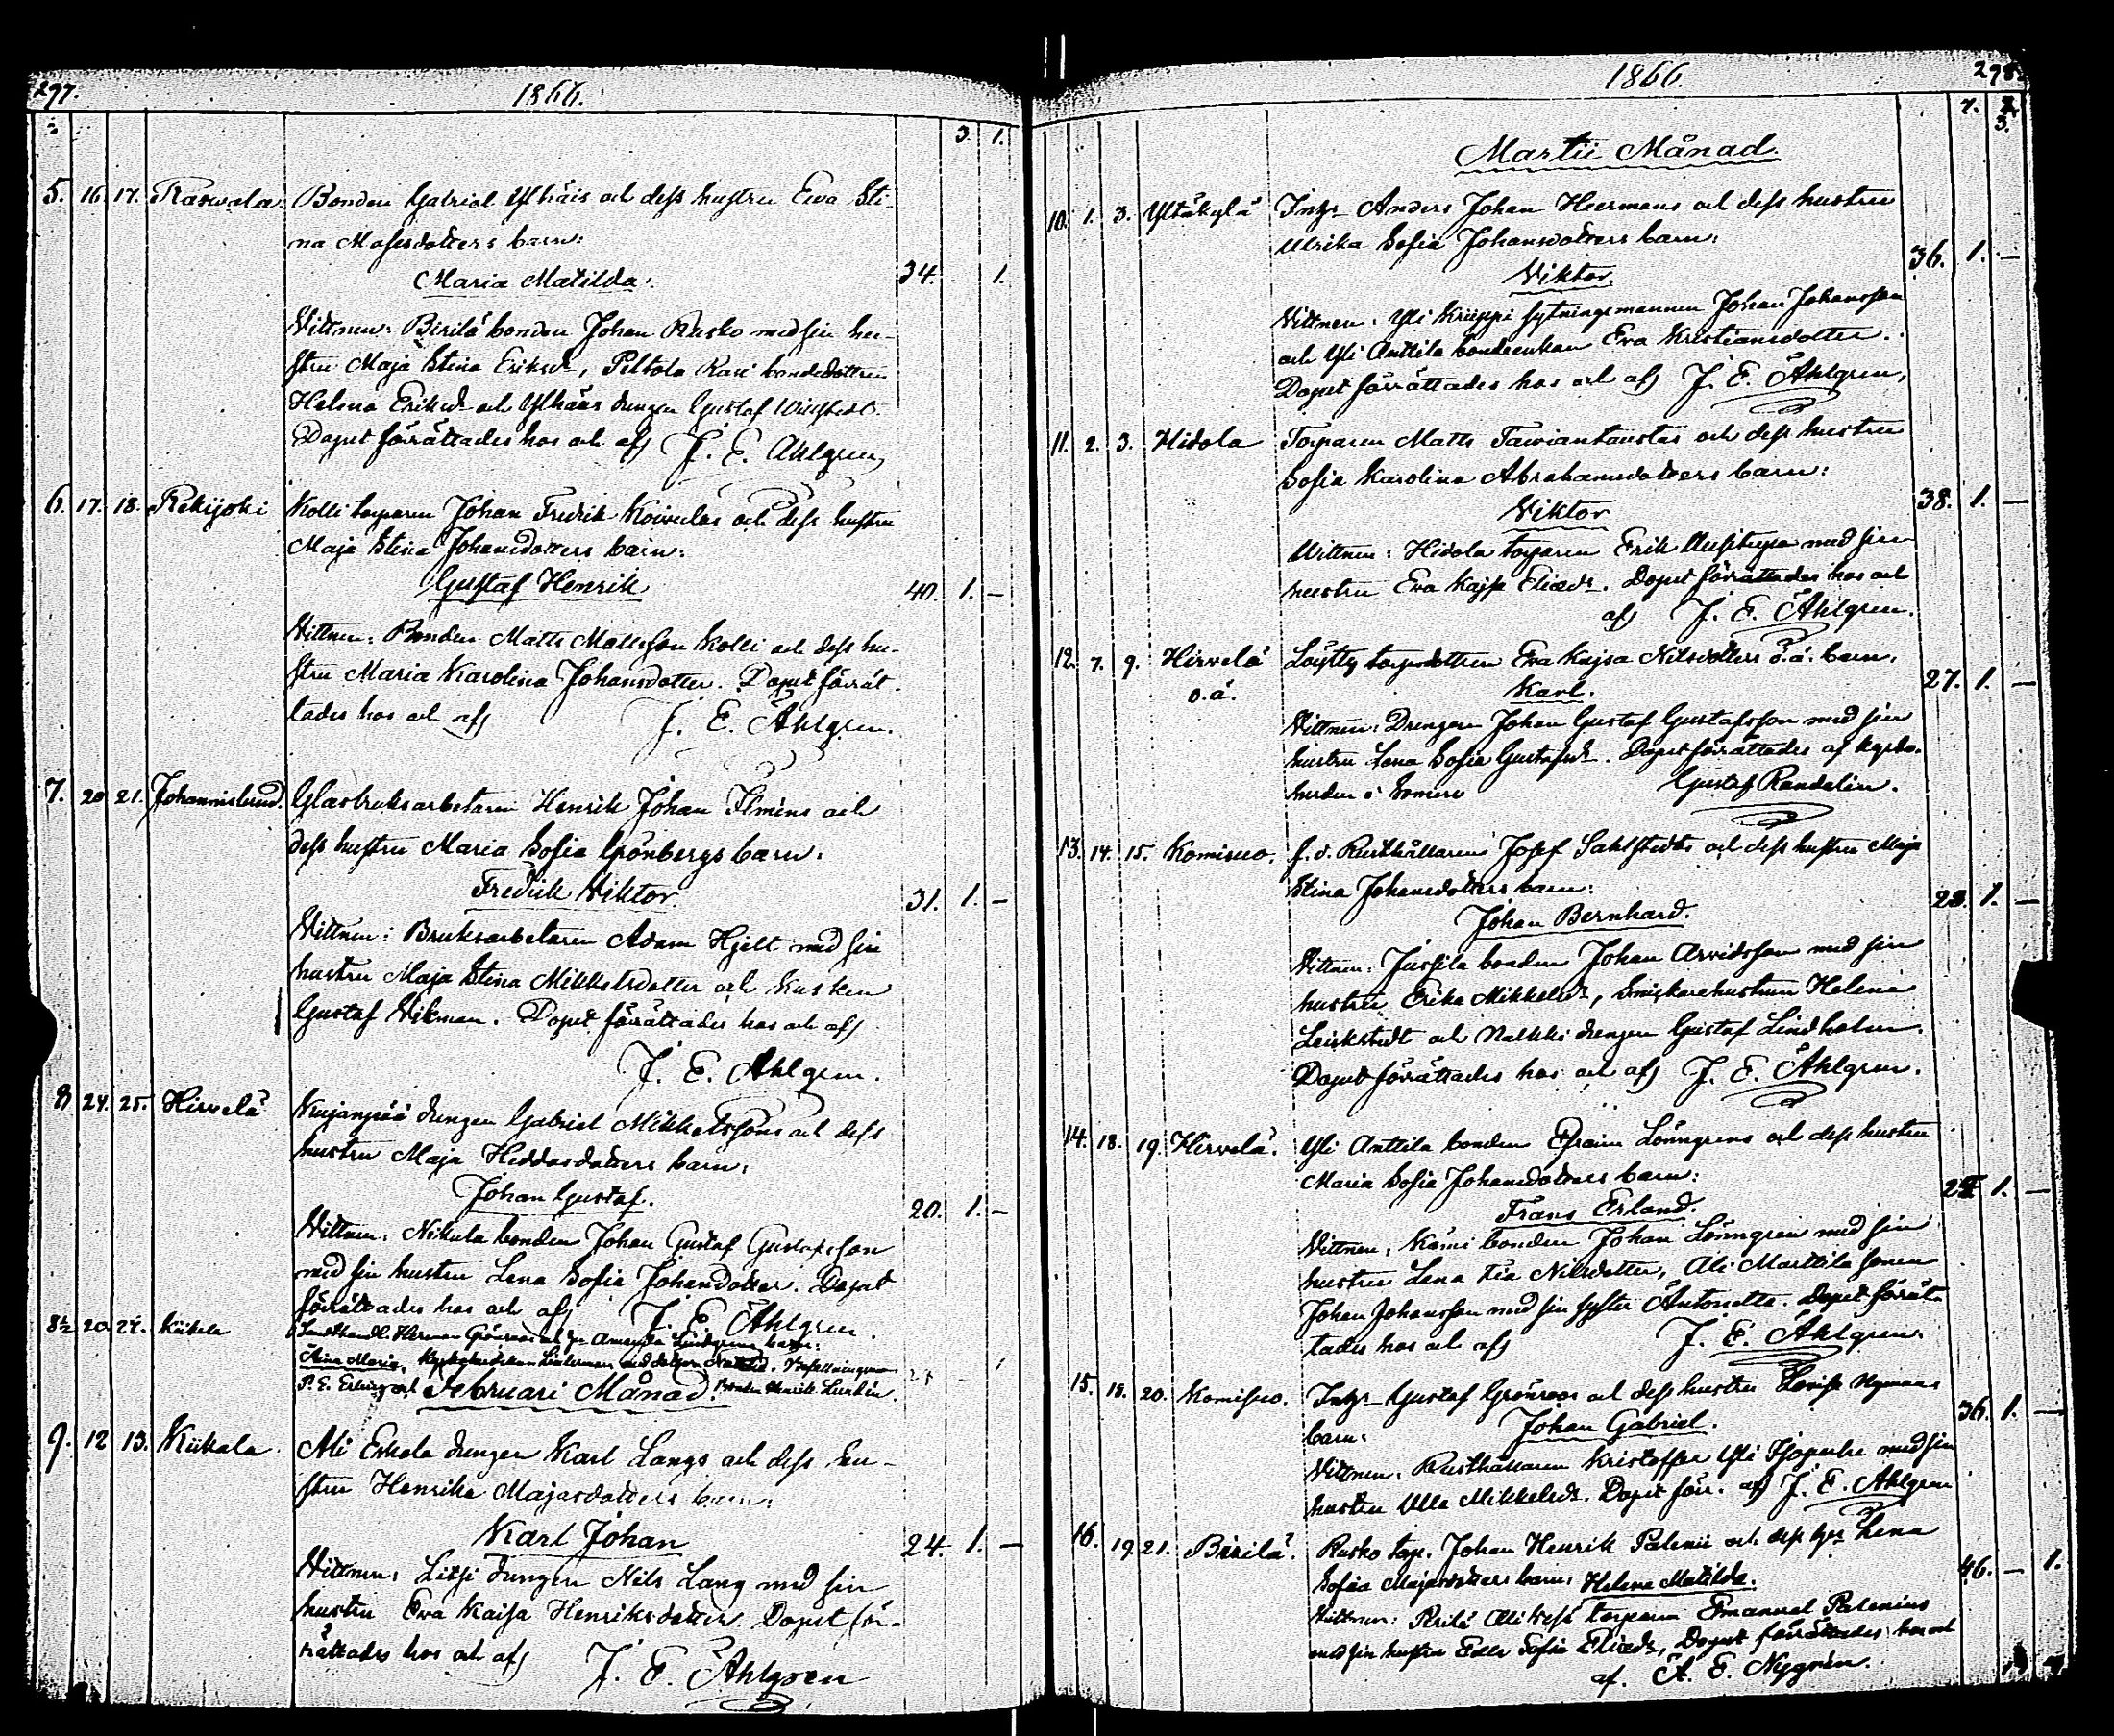 297.
1866.
3. 1.
5. 16. 17. Raswala. Bonden Gabriel Ylhäis och dess hustru Ewa Sti-
na Mosesdotters barn:
Maria Matilda. 34. 1.
Vittnen: Birilä bonden Johan Rusko med sin hu-
stru Maja Stina Eriksdr, Peltola Rasi bondedottren
Helena Eriksdr och Ylhäis drengen Gustaf
Dopet förrättades hos och af J. E. Ahlgren
6. 17. 18. Rekijoki Kolli torparen Johan Fredrik Koivulas och dess hustru
Maja Stina Johansdotters barn:
Gustaf Henrik 40. 1. —
Vittnen: Bonden Matts Mattsson Kolli och dess hu-
stru Maria Karolina Johansdotter. Dopet förrät-
tades hos och af J. E. Ahlgren.
7. 20 21. Johannislund. Glasbruksarbetaren Henrik Johan Ilmèns och
dess hustru Maria Sofia Grönbergs barn:
Fredrik Viktor. 31. 1. —
Vittnen: Bruksarbetaren Adam Hjelt med sin
hustru Maja Stina Mikkelsdotter och Kusken
Gustaf Vikman. Dopet förrättades hos och af
J. E. Ahlgren.
8 24. 25. Hirvelä Kujanpää drengen Gabriel Mikkelssons och dess
hustru Maja Heddasdotters barn:
Johan Gustaf. 20. 1. —
Vittnen: Nikula bonden Johan Gustaf Gustafsson
med sin hustru Lena Sofia Johansdotter. Dopet
förrättades hos och af J. E. Åhlgren.
8½ 20. 24. Kiikala Landthandl. Herman Grönroos och hu Amanda Lindgrens barn:
Aina Maria.
P. E. Bonden Henrik
Februari Månad.
9. 12 13. Kiikala Ali Erkola drengen Karl Langs och dess hu-
stru Henrika Majasdotters barn:
Karl Johan 24. 1. —
Vittnen: drengen Nils Lang med sin
hustru Eva Kaisa Henriksdotter. Dopet för-
rättades hos och af J. E. Åhlgren
1866.
298.
7. 2.
3.
Martii Månad.
10. 1. 3. Yltäkylä Inhs Anders Johan Heermans och dess hustru
Ulrika Sofia Johansdotters barn:
Viktor. 36. 1. —
Vittnen: Yli Knuppi sytningsmannen Johan Johansson
och Yli Anttila bondeenkan Eva Kristiansdotter.
Dopet förrättades hos och af J. E. Åhlgren,
11. 2. 3. Hidola Torparen Matts Tawiantaustas och dess hustru
Sofia Karolina Abrahamsdotters barn:
Viktor 38. 1. —
Vittnen: Hidola torparen Erik Uusitupa med sin
hustru Eva Kajsa Eliædr. Dopet förrättades hos och
af J. E. Åhlgren.
12. 7. 9. Hirvelä Löytty torpardottren Eva Kajsa Nilsdotters o.ä. barn.
o.ä. Karl. 27. 1. —
Vittnen: Drengen Johan Gustaf Gustafsson med sin
hustru Lena Sofia Gustafsdr. Dopet förrättades af Kyrko-
herden i Somero Gustaf Randelin.
13. 14. 15. Komisuo. f.d. Rusthållaren Josef Sahlstedts och dess hustru Maja
Stina Johansdotters barn:
Johan Bernhard. 23. 1. —
Vittnen: Jussila bonden Johan Arvidsson med sin
hustru Erika Mikkelsdr, Snickarehustrun Helena
Leickstedt och Nalkki drengen Gustaf Lindholm.
Dopet förrättades hos och af J. E. Åhlgren.
14. 18. 19. Hirvelä. Yli Anttila bonden Efraim Lönngrens och dess hustru
Maria Sofia Johansdotters barn:
Frans Erland. 24 1. —
Vittnen: Kämi bonden Johan Lönngren med sin
hustru Lena Lisa Nilsdotter, Ali Marttila sonen
Johan Johansson med sin syster Antonetta. Dopet förrät-
tades hos och af J. E. Åhlgren.
15. 18. 20. Komisuo. Inhs Gustaf Grönroos och dess hustru Lovisa Nymans
barn: Johan Gabriel. 36. 1. —
Vittnen: Rusthållaren Kristoffer Yli med sin
hustru Ulla Mikkelsdr. Dopet förr. af J. E. Åhlgren
16. 19. 21. Birilä. Rusko torp. Johan Henrik Palenii och dess hu Lena
Sofia Majasdotters barn: Helena Matilda. 46. — 1.
Vittnen: Pirilä torparen Emanuel Palenius
med sin hustru Edla Sofia Eliædr, Dopet förrättades hos och
af. A. E. Nygrén.